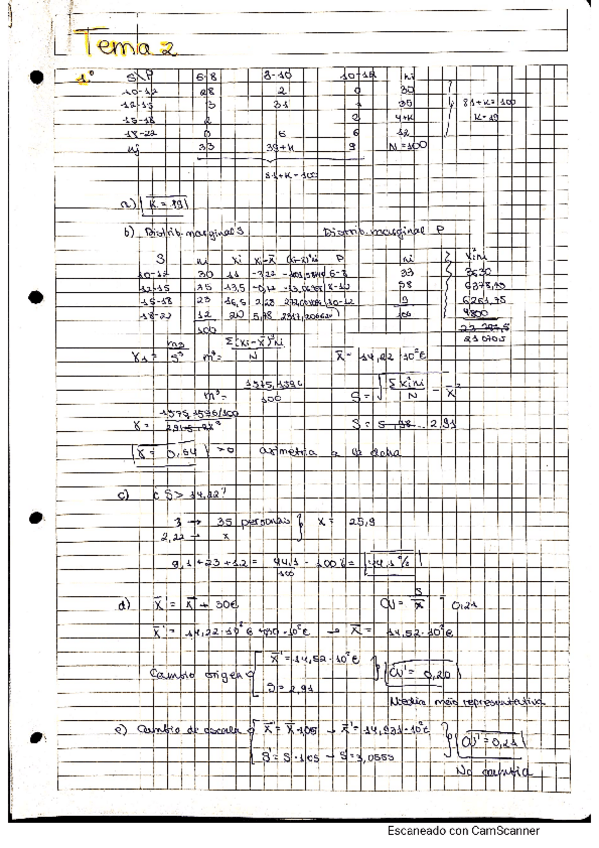 Tema 2
1.º S\P 6-8 8-10 10-12 ni
10-12 28 2 0 30
12-15 3 31 1 35
15-18 2 2 4+K
18-22 0 6 6 12
nj 33 39+K 9 N=100
81+K=100
K=19
81+K=100
a) K=19
b) Distrib. marginal S Distrib. marginal P
S ni xi xi-x̄ P ni xi²ni
10-12 30 11 -3,22 6-8 33 3630
12-15 35 13,5 8-10 58 6378,75
15-18 23 16,5 2,28 10-12 9 6261,75
18-22 12 20 5,78 100 4800
100
m³ = Σ(xi-x̄)³ni / N x̄ = 14,22·10²€
m³ = 100 S = √ Σxi²ni / N - x̄²
S = 2,91
γ = 0,64 >0 asimetria a la dcha
c) ¿S > 14,22?
3 → 35 personas x = 25,9
2,22 → x
9,1+23+12 = 44,1 / 100 · 100% = 44,1%
d) x̄' = x̄ + 30€ CV = S / x̄ = 0,21
x̄' = 14,52·10²€
Cambio origen x̄' = 14,52·10²€ CV' = 0,20
S = 2,91
Media más representativa
e) Cambio de escala x̄' = x̄·1,05 → x̄' = 14,931·10²€ CV' = 0,21
S' = S·1,05 → S' = 3,0555
No cambia
Escaneado con CamScanner